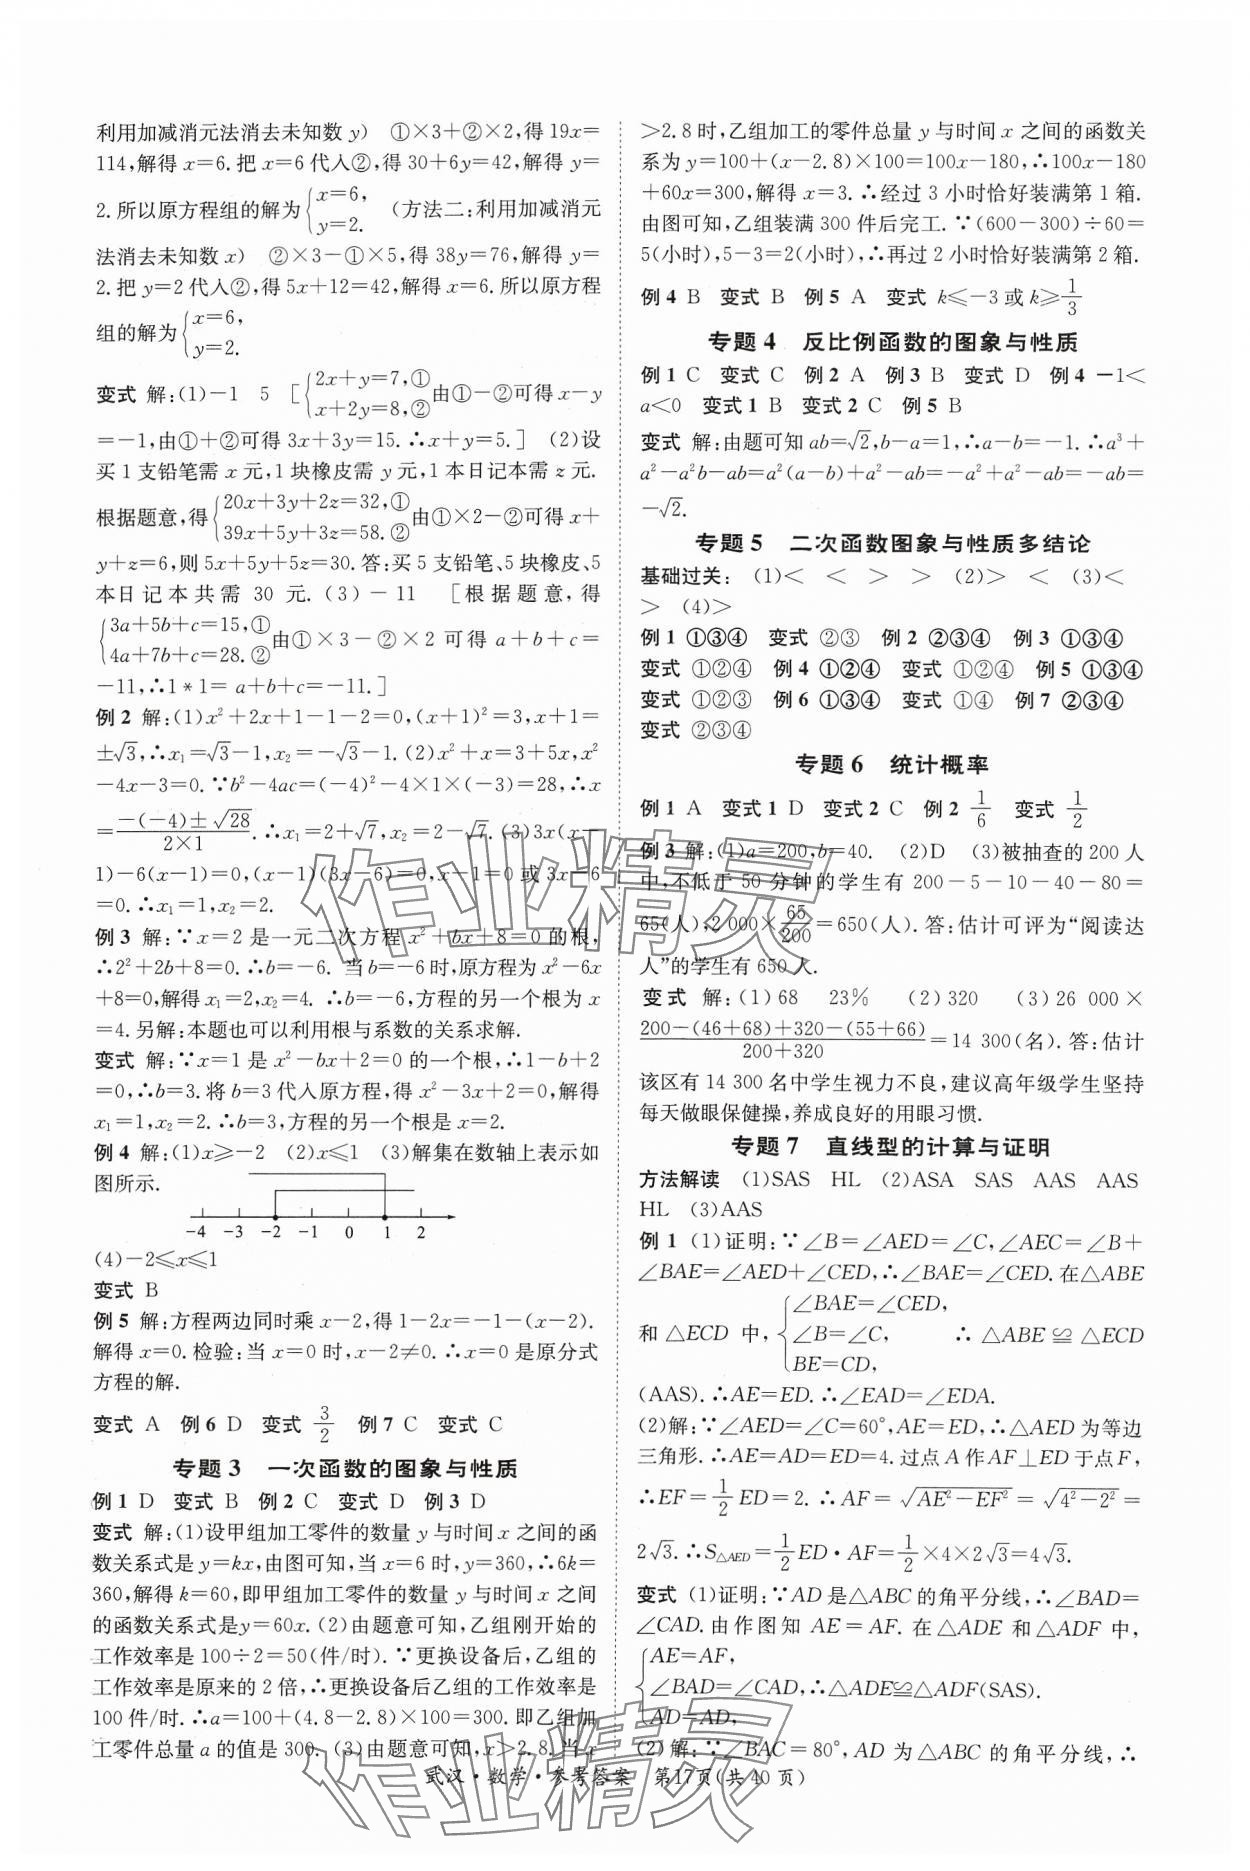 利用加减消元法消去未知数 y) ①×3+②×2,得 19x=
114,解得 x=6. 把 x=6 代入②,得 30+6y=42,解得 y=
2. 所以原方程组的解为{x=6, y=2. (方法二:利用加减消元
法消去未知数 x) ②×3-①×5,得 38y=76,解得 y=
2. 把 y=2 代入②,得 5x+12=42,解得 x=6. 所以原方程
组的解为{x=6, y=2.
变式 解:(1)-1 5 [{2x+y=7,① x+2y=8,②由①-②可得 x-y
=-1,由①+②可得 3x+3y=15. ∴x+y=5.] (2)设
买 1 支铅笔需 x 元,1 块橡皮需 y 元,1 本日记本需 z 元.
根据题意,得{20x+3y+2z=32,① 39x+5y+3z=58. ②由①×2-②可得 x+
y+z=6,则 5x+5y+5z=30. 答:买 5 支铅笔、5 块橡皮、5
本日记本共需 30 元. (3)-11 [根据题意,得
{3a+5b+c=15,① 4a+7b+c=28. ②由①×3-②×2 可得 a+b+c=
-11,∴1*1=a+b+c=-11.]
例 2 解:(1)x²+2x+1-1-2=0,(x+1)²=3,x+1=
±√3,∴x₁=√3-1,x₂=-√3-1. (2)x²+x=3+5x,x²
-4x-3=0. ∵b²-4ac=(-4)²-4×1×(-3)=28,∴x
=(-(-4)±√28)/(2×1). ∴x₁=2+√7,x₂=2-√7. (3)3x(x-
1)-6(x-1)=0,(x-1)(3x-6)=0,x-1=0 或 3x-6
=0. ∴x₁=1,x₂=2.
例 3 解:∵x=2 是一元二次方程 x²+bx+8=0 的根,
∴2²+2b+8=0. ∴b=-6. 当 b=-6 时,原方程为 x²-6x
+8=0,解得 x₁=2,x₂=4. ∴b=-6,方程的另一个根为 x
=4. 另解:本题也可以利用根与系数的关系求解.
变式 解:∵x=1 是 x²-bx+2=0 的一个根,∴1-b+2
=0,∴b=3. 将 b=3 代入原方程,得 x²-3x+2=0,解得
x₁=1,x₂=2. ∴b=3,方程的另一个根是 x=2.
例 4 解:(1)x≥-2 (2)x≤1 (3)解集在数轴上表示如
图所示.
-4 -3 -2 -1 0 1 2
(4)-2≤x≤1
变式 B
例 5 解:方程两边同时乘 x-2,得 1-2x=-1-(x-2).
解得 x=0. 检验:当 x=0 时,x-2≠0. ∴x=0 是原分式
方程的解.
变式 A 例 6 D 变式 3/2 例 7 C 变式 C
专题 3 一次函数的图象与性质
例 1 D 变式 B 例 2 C 变式 D 例 3 D
变式 解:(1)设甲组加工零件的数量 y 与时间 x 之间的函
数关系式是 y=kx,由图可知,当 x=6 时,y=360,∴6k=
360,解得 k=60,即甲组加工零件的数量 y 与时间 x 之间
的函数关系式是y=60x. (2)由题意可知,乙组刚开始的
工作效率是 100÷2=50(件/时). ∵更换设备后,乙组的
工作效率是原来的 2 倍,∴更换设备后乙组的工作效率是
100 件/时. ∴a=100+(4.8-2.8)×100=300. 即乙组加
工零件总量 a 的值是 300. (3)由题意可知,x>2.8. 当 x
>2.8 时,乙组加工的零件总量 y 与时间 x 之间的函数关
系为 y=100+(x-2.8)×100=100x-180,∴100x-180
+60x=300,解得 x=3. ∴经过 3 小时恰好装满第 1 箱.
由图可知,乙组装满 300 件后完工. ∵(600-300)÷60=
5(小时),5-3=2(小时),∴再过 2 小时恰好装满第 2 箱.
例 4 B 变式 B 例 5 A 变式 k≤-3 或 k≥1/3
专题 4 反比例函数的图象与性质
例 1 C 变式 C 例 2 A 例 3 B 变式 D 例 4 -1<
a<0 变式 1 B 变式 2 C 例 5 B
变式 解:由题可知 ab=√2,b-a=1,∴a-b=-1. ∴a³+
a²-a²b-ab=a²(a-b)+a²-ab=-a²+a²-ab=-ab=
-√2.
专题 5 二次函数图象与性质多结论
基础过关: (1)< < > > (2)> < (3)<
> (4)>
例 1 ①③④ 变式 ②③ 例 2 ②③④ 例 3 ①③④
变式 ①②④ 例 4 ①②④ 变式 ①②④ 例 5 ①③④
变式 ①②③ 例 6 ①③④ 变式 ①④ 例 7 ②③④
变式 ②③④
专题 6 统计概率
例 1 A 变式 1 D 变式 2 C 例 2 1/6 变式 1/2
例 3 解:(1)a=200,b=40. (2)D (3)被抽查的 200 人
中,不低于 50 分钟的学生有 200-5-10-40-80=
65(人),2 000×65/200=650(人). 答:估计可评为“阅读达
人”的学生有 650 人.
变式 解:(1)68 23% (2)320 (3)26 000×
(200-(46+68)+320-(55+66))/(200+320)=14 300(名). 答:估计
该区有 14 300 名中学生视力不良,建议高年级学生坚持
每天做眼保健操,养成良好的用眼习惯.
专题 7 直线型的计算与证明
方法解读 (1)SAS HL (2)ASA SAS AAS AAS
HL (3)AAS
例 1 (1)证明:∵∠B=∠AED=∠C,∠AEC=∠B+
∠BAE=∠AED+∠CED,∴∠BAE=∠CED. 在△ABE
和△ECD 中,{∠BAE=∠CED, ∠B=∠C, BE=CD, ∴△ABE≌△ECD
(AAS). ∴AE=ED. ∴∠EAD=∠EDA.
(2)解:∵∠AED=∠C=60°,AE=ED,∴△AED为等边
三角形. ∴AE=AD=ED=4. 过点 A 作 AF⊥ED 于点 F,
∴EF=1/2 ED=2. ∴AF=√(AE²-EF²)=√(4²-2²)=
2√3. ∴S△AED=1/2 ED·AF=1/2×4×2√3=4√3.
变式 (1)证明:∵AD 是△ABC 的角平分线,∴∠BAD=
∠CAD. 由作图知 AE=AF. 在△ADE 和△ADF 中,
{AE=AF, ∠BAD=∠CAD, AD=AD, ∴△ADE≌△ADF(SAS).
(2)解:∵∠BAC=80°,AD 为△ABC 的角平分线,∴
武汉·数学·参考答案 第17页(共 40 页)
作业精灵
作业精灵